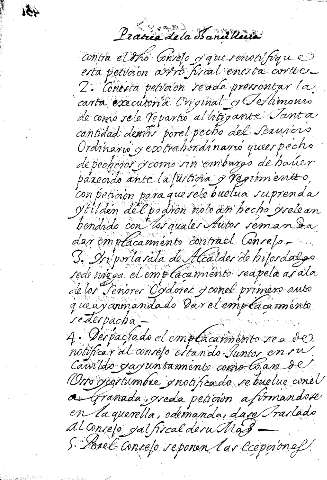 Practica de la Chancilleria
contra el dho Consejo y que se notifique
esta peticion a vro fiscal en esta corte =
2. Con esta peticion se a de pressentar la
carta executoria Original y Testimonio
de como se le repartio al litigante tanta
cantidad de mrs por el pecho del servicio
Ordinario y extrahordinario que es pecho
de pecheros y como sin embargo de hauer
parecido ante la Justicia y Regimiento,
con peticion para que se le buelua su prenda
y tilden del padron no lo an hecho y se le an
bendido con los quales Autos se manda
dar emplaçamiento contra el Consejo.
3. Si por la sala de Alcaldes de hijos dalgo
se deniega el emplaçamiento se apela a sala
de los Señores Oydores y con el primero auto
que aya mandado dar el emplaçamiento
se despacha
4. Despachado el emplaçamiento se a de
notificar al consejo estando Juntos en su
Cauildo y ayuntamiento como lo an de
Vsso y costumbre y notificado se buelue con el
a Granada, y se da peticion afirmandose
en la querella, o demanda, da se traslado
Al Consejo y al fiscal de su Magd
5. Por el Consejo se ponen las Ecepciones